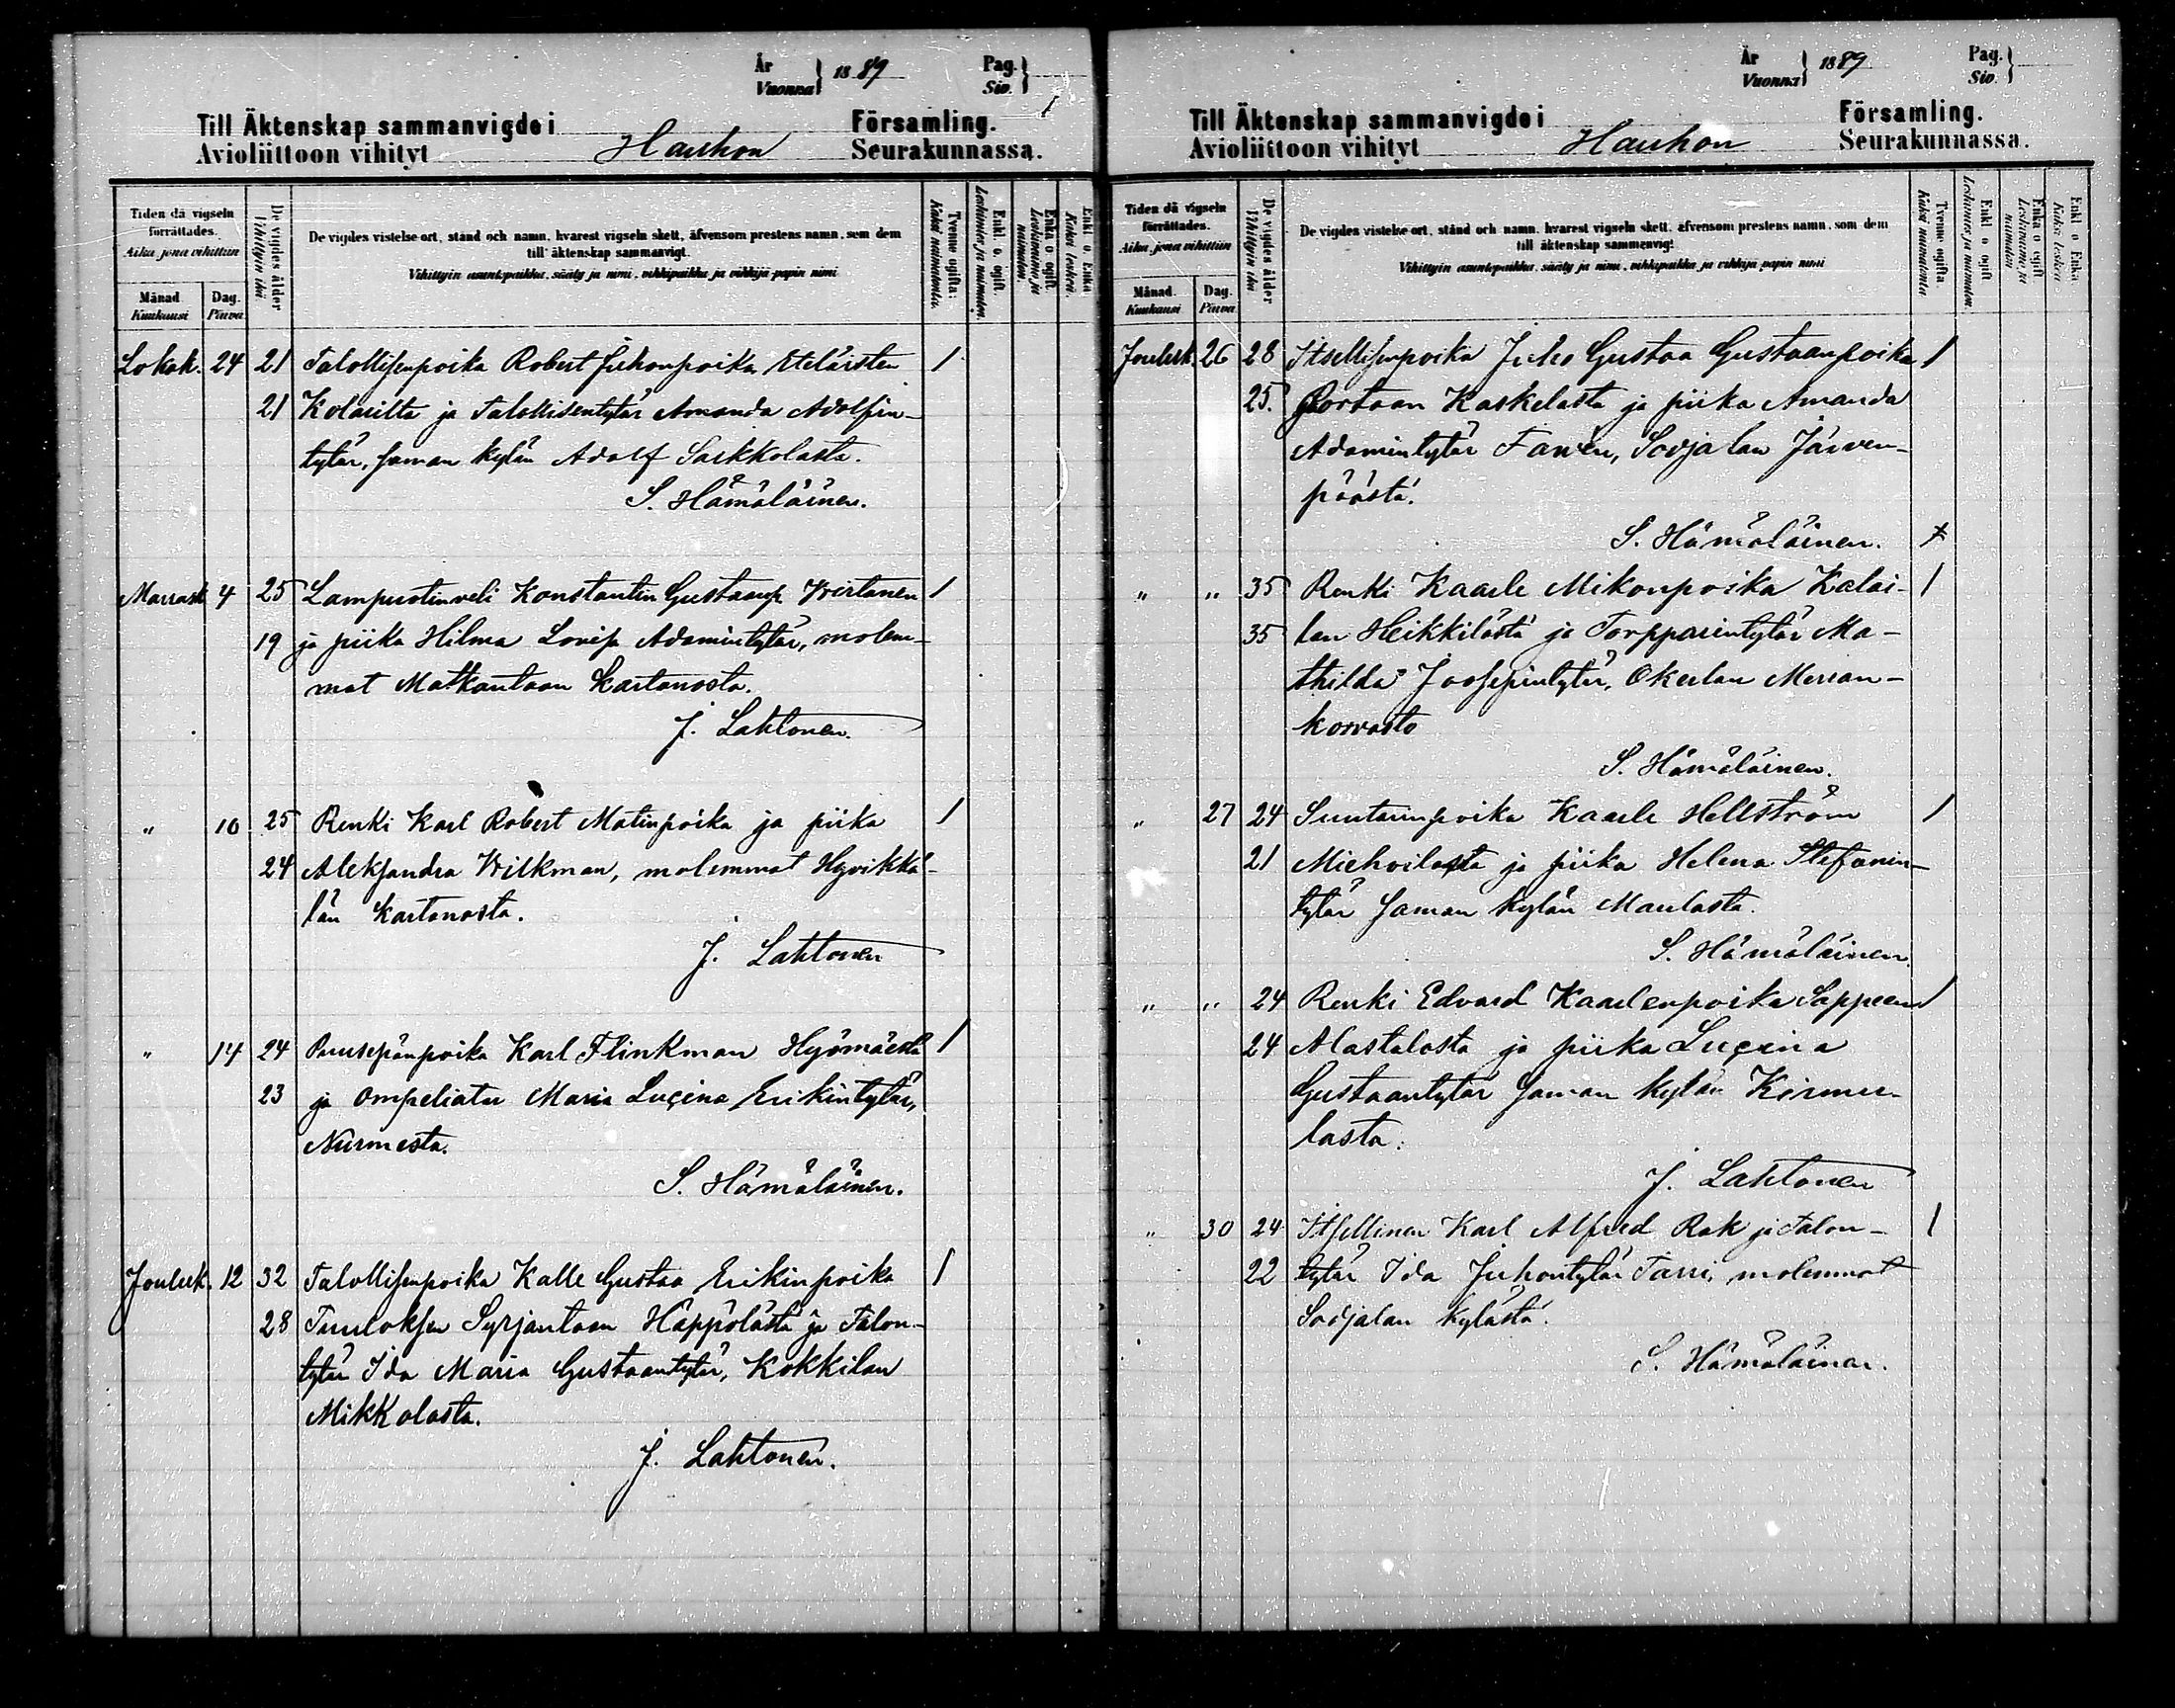 År
Vuonna } 1889
Pag.
Siv. }
Till Äktenskap sammanvigde i Församling.
Avioliittoon vihityt Hauhon Seurakunnassa.
Tiden då vigseln förrättades.
Aika, jona vihittiin
Månad. Kuukausi
Dag. Päivä
De vigdes ålder
Vihittyin ikä
De vigdes vistelse ort, stånd och namn, hvarest vigseln skett, äfvensom prestens namn, som dem
till äktenskap sammanvigt.
Vihittyin asuntopaikka, sääty ja nimi, vihkipaikka ja vihkijä-papin nimi
Tvenne ogifta.
Kaksi naimatonta.
Enkl. o. ogift.
Leskimies ja naimaton.
Enka o ogift.
Leskivaimo ja naimaton.
Enkl o. Enka
Kaksi leskeä.
Lokak. 24 21 Talollisenpoika Robert Juhonpoika Eteläisten 1
21 Kolarilta ja Talollisentytär Amanda Adolfin-
tytär, saman kylän Adolf Sarkkolasta.
S. Hämäläinen.
Marrask 4 25 Lampuotinveli Konstantin Gustaanp. Wirtanen 1
19 ja piika Hilma Lovisa Adamintytär, molem-
mat Matkantaan Kartanosta.
J. Lahtonen.
" 10 25 Renki Karl Robert Matinpoika ja piika 1
24 Aleksandra Wilkman, molemmat Hyvikkä-
län Kartanosta.
J. Lahtonen
" 14 24 Puusepänpoika Karl Flinkman Hyömäestä 1
23 ja Ompeliatar Maria Luçina Erikintytär,
Nurmesta.
S. Hämäläinen.
Jouluk. 12 32 Talollisenpoika Kalle Gustaa Erikinpoika 1
28 Tuuloksen Syrjäntaan Häppölästä ja Talon-
tytär Ida Maria Gustaantytär, Kokkilan
Mikkolasta.
J. Lahtonen.
År
Vuonna } 1889
Pag.
Siv. }
Till Äktenskap sammanvigde i Församling.
Avioliittoon vihityt Hauhon Seurakunnassa.
Tiden då vigseln förrättades.
Aika, jona vihittiin
Månad. Kuukausi
Dag. Päivä
De vigdes ålder
Vihittyin ikä
De vigdes vistelse ort, stånd och namn, hvarest vigseln skett, äfvensom prestens namn, som dem
till äktenskap sammanvigt
Vihittyin asuntopaikka, sääty ja nimi, vihkipaikka ja vihkijä-papin nimi
Tvenne ogifta
Kaksi naimatonta
Enkl o ogift
Leskimies ja naimaton
Enka o ogift
Leskivaimo ja naimaton
Enkl o Enka
Kaksi leskeä
Jouluk. 26 28 Itsellisenpoika Juho Gustaa Gustaanpoika 1
25. Portaan Kaskelasta ja piika Amanda
Adamintytär Fawén, Sodjalan Järven-
päästä.
S. Hämäläinen.
" " 35 Renki Kaarle Mikonpoika Kalai- 1
35 lan Heikkilästä ja Torpparintytär Ma-
thilda Joosepintytär, Okerlan Meran-
korvasta
S. Hämäläinen.
" 27 24 Suutarinpoika Kaarle Hellström 1
21 Miehoilasta ja piika Helena Stefanin-
tytär saman kylän Maulasta.
S. Hämäläinen.
" " 24 Renki Edvard Kaarlenpoika Sappeen 1
24 Alastalosta ja piika Luçina
Gustaantytär saman kylän Kirmu-
lasta.
J. Lahtonen
" 30 24 Itsellinen Karl Alfred Rak ja Talon- 1
22 tytär Ida Juhontytär Tarri, molemmat
Sodjalan kylästä.
S. Hämäläinen.